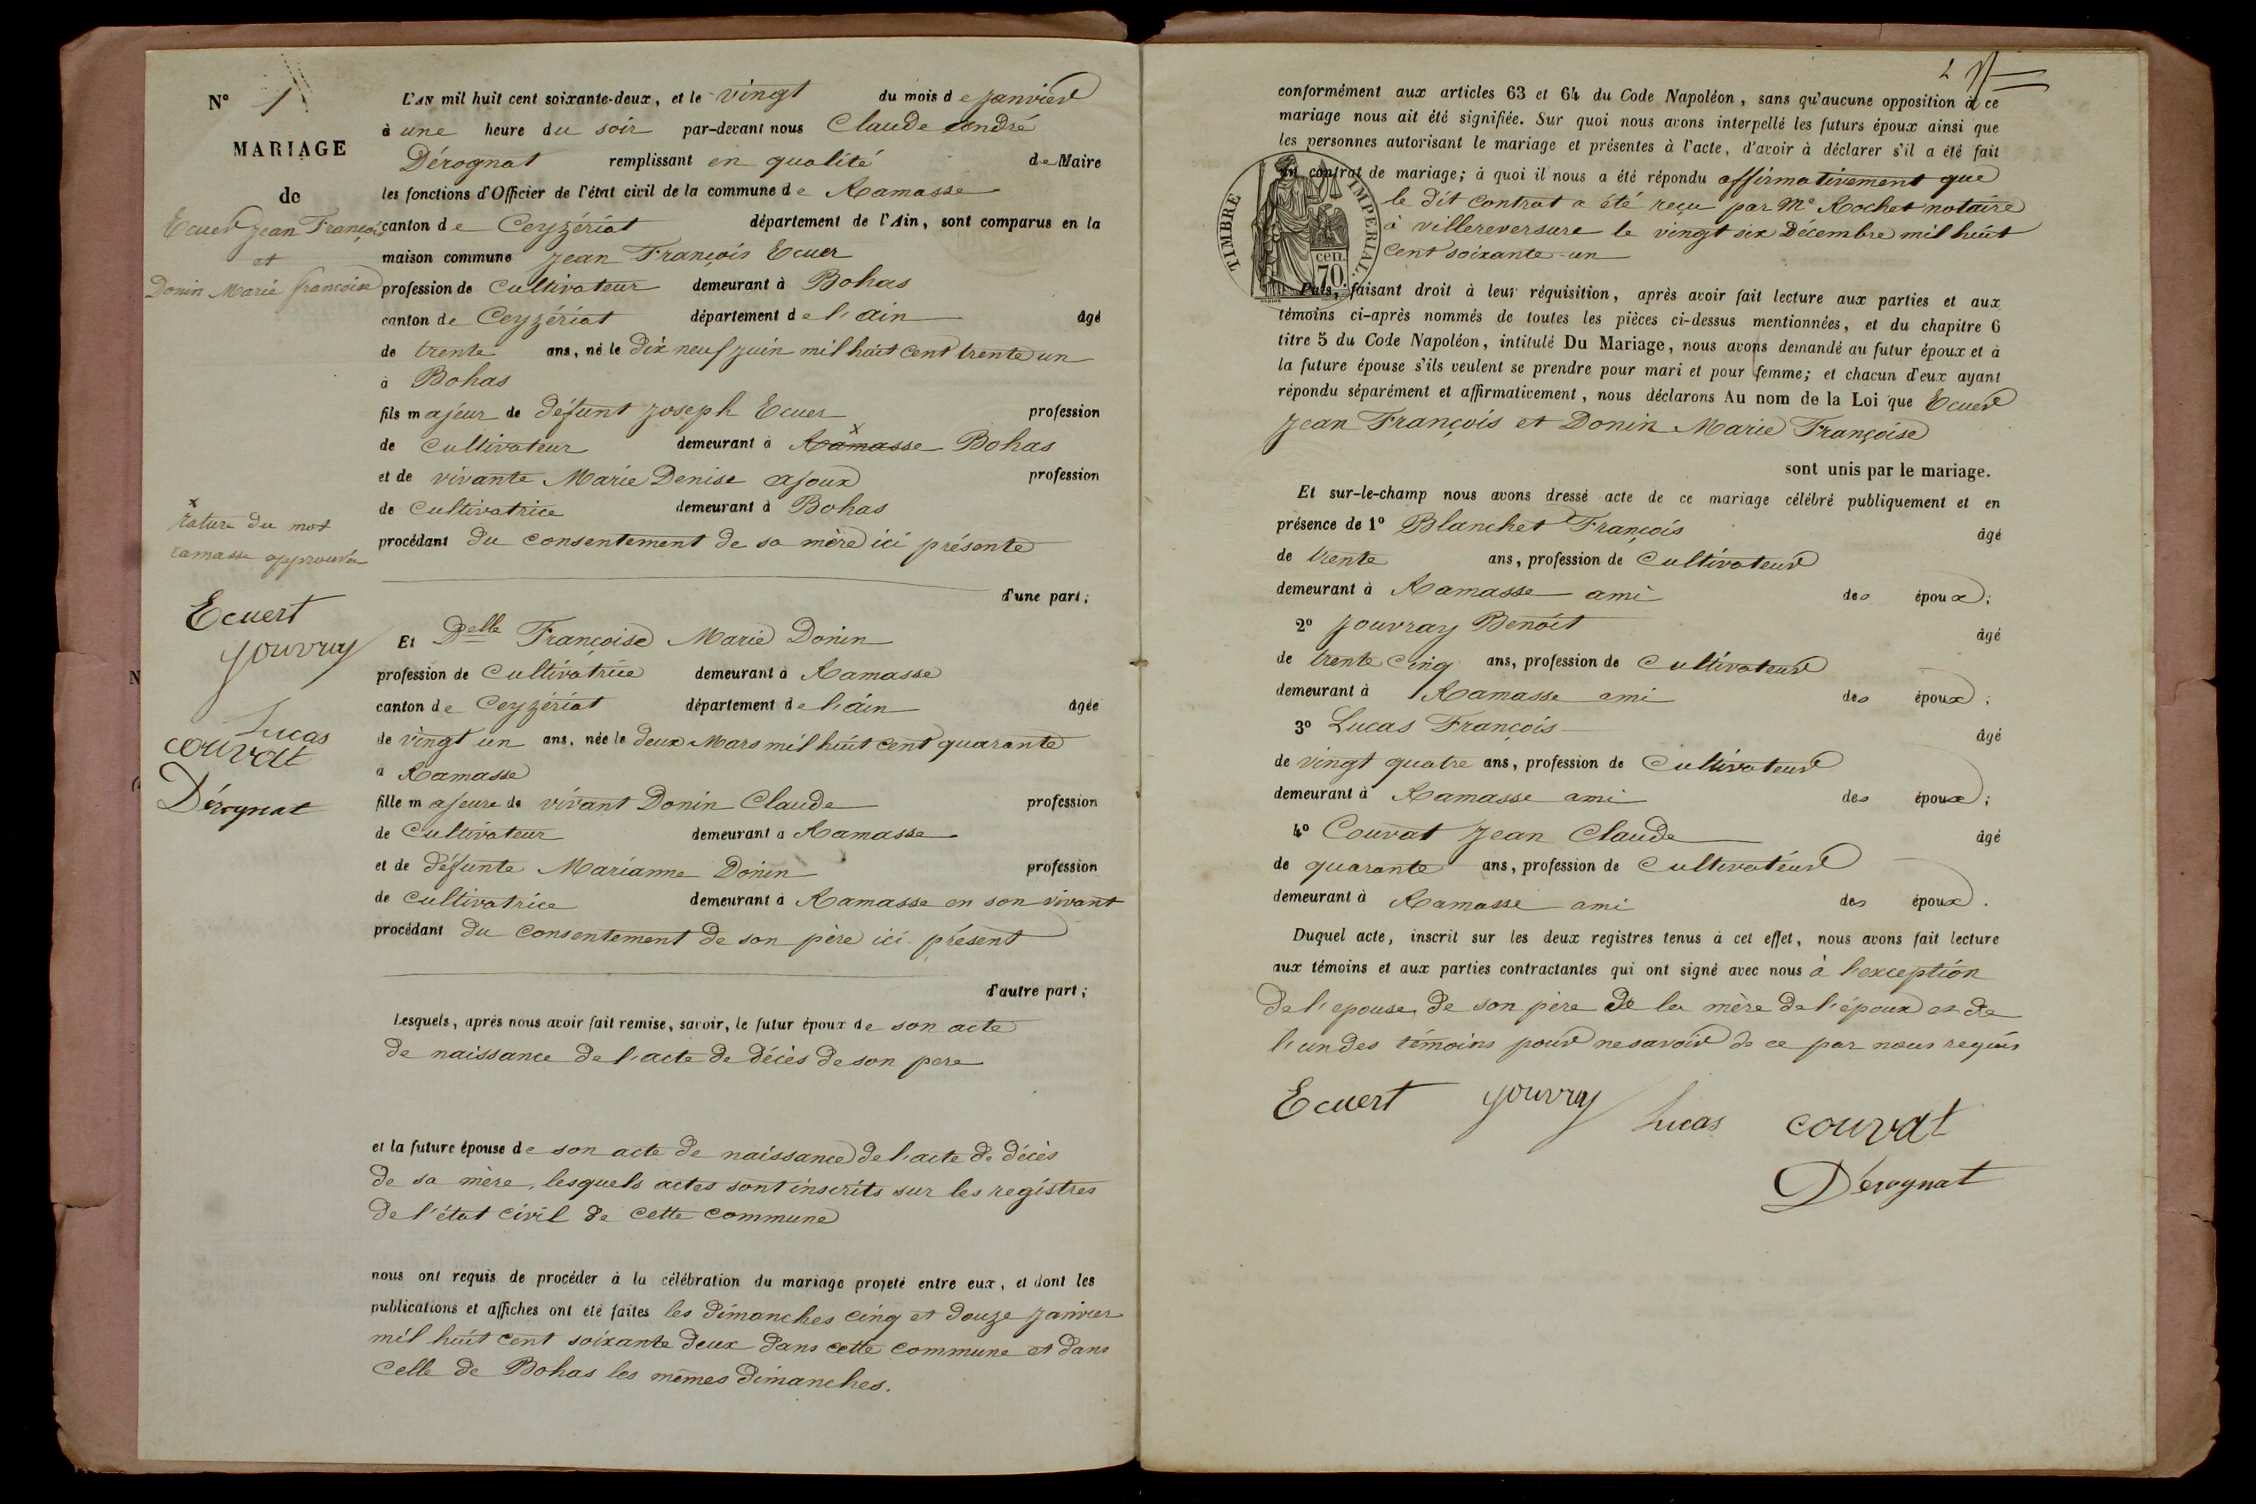 N° 1
MARIAGE
de
Ecuer Jean François
et
Donin Marie françoise
L'AN mil huit cent soixante-deux, et le vingt du mois de Janvier
à une heure du soir par-devant nous Claude André
Dérognat remplissant en qualité de Maire
les fonctions d'Officier de l'état civil de la commune de Ramasse
canton de Ceyzériat département de l'Ain, sont comparus en la
maison commune Jean François Ecuer
profession de Cultivateur demeurant à Bohas
canton de Ceyzériat département de l'ain âgé
de trente ans, né le Dix neuf juin mil huit cent trente un
à Bohas
fils majeur de défunt Joseph Ecuer profession
de Cultivateur demeurant à Ramasse Bohas
et de vivante Marie Denise ajoux profession
de Cultivatrice demeurant à Bohas
procédant du consentement de sa mère ici présente
d'une part;
x
rature du mot
ramasse approuvée
Ecuert
Jouvray
Lucas
couvat
Dérognat
Et Delle Françoise Marie Donin
profession de Cultivatrice demeurant à Ramasse
canton de Ceyzériat département de l'ain âgée
de vingt un ans, née le deux Mars mil huit cent quarante
à Ramasse
fille majeure de vivant Donin Claude profession
de Cultivateur demeurant à Ramasse
et de défunte Marianne Donin profession
de Cultivatrice demeurant à Ramasse en son vivant
procédant du Consentement de son père ici présent
d'autre part;
Lesquels, après nous avoir fait remise, savoir, le futur époux de son acte
de naissance de l'acte de décès de son pere
et la future épouse de son acte de naissance de l'acte de décès
de sa mère, lesquels actes sont inscrits sur les registres
de l'état civil de cette commune
nous ont requis de procéder à la célébration du mariage projeté entre eux, et dont les
publications et affiches ont été faites les dimanches cinq et douze janvier
mil huit cent soixante deux dans cette commune et dans
celle de Bohas les mêmes dimanches.
2
conformément aux articles 63 et 64 du Code Napoléon, sans qu'aucune opposition à ce
mariage nous ait été signifiée. Sur quoi nous avons interpellé les futurs époux ainsi que
les personnes autorisant le mariage et présentes à l'acte, d'avoir à déclarer s'il a été fait
un contrat de mariage; à quoi il nous a été répondu affirmativement que
le dit contrat a été reçu par Me Rochet notaire
à villereversure le vingt six Décembre mil huit
cent soixante-un
TIMBRE IMPERIAL
70 cen.
Puis, faisant droit à leur réquisition, après avoir fait lecture aux parties et aux
témoins ci-après nommés de toutes les pièces ci-dessus mentionnées, et du chapitre 6
titre 5 du Code Napoléon, intitulé Du Mariage, nous avons demandé au futur époux et à
la future épouse s'ils veulent se prendre pour mari et pour femme; et chacun d'eux ayant
répondu séparément et affirmativement, nous déclarons Au nom de la Loi que Ecuer
Jean François et Donin Marie Françoise
sont unis par le mariage.
Et sur-le-champ nous avons dressé acte de ce mariage célébré publiquement et en
présence de 1° Blanchet François âgé
de trente ans, profession de Cultivateur
demeurant à Ramasse ami des époux;
2° Jouvray Benoit âgé
de trente cinq ans, profession de Cultivateur
demeurant à Ramasse ami des époux;
3° Lucas François âgé
de vingt quatre ans, profession de Cultivateur
demeurant à Ramasse ami des époux;
4° Couvat Jean Claude âgé
de quarante ans, profession de Cultivateur
demeurant à Ramasse ami des époux.
Duquel acte, inscrit sur les deux registres tenus à cet effet, nous avons fait lecture
aux témoins et aux parties contractantes qui ont signé avec nous à l'exception
de l'epouse, de son père de la mère de l'époux et de
l'un des témoins pour ne savoir de ce par nous requis
Ecuert Jouvray Lucas couvat
Dérognat